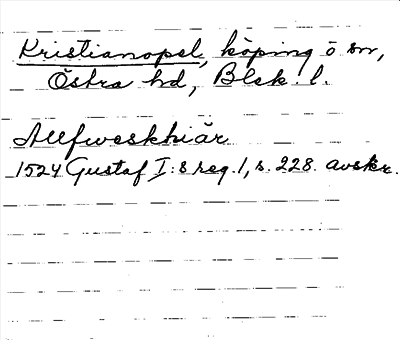 Kristianopel, köping o sn,
Östra hd, Blek. l.
Allfweskhiär
1524 Gustaf I:s reg. 1, s. 228. avskr.